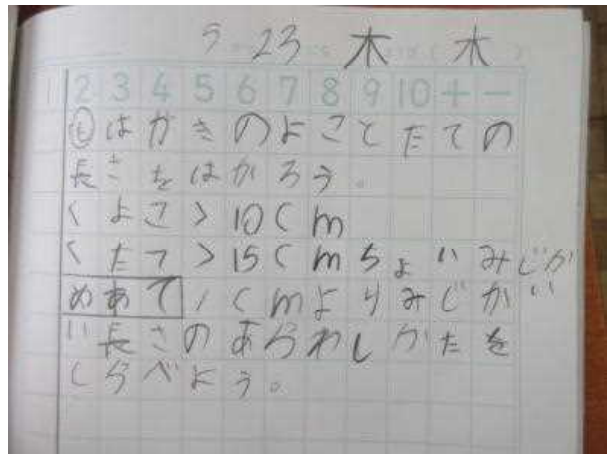 5 23 木 木
1 2 3 4 5 6 7 8 9 10 + −
もはがきのよことたての
長さをはかろう。
<よこ>10cm
<たて>15cmちょいみじか
い
めあて 1cmよりみじか
い長さのあらわしかたを
しらべよう。